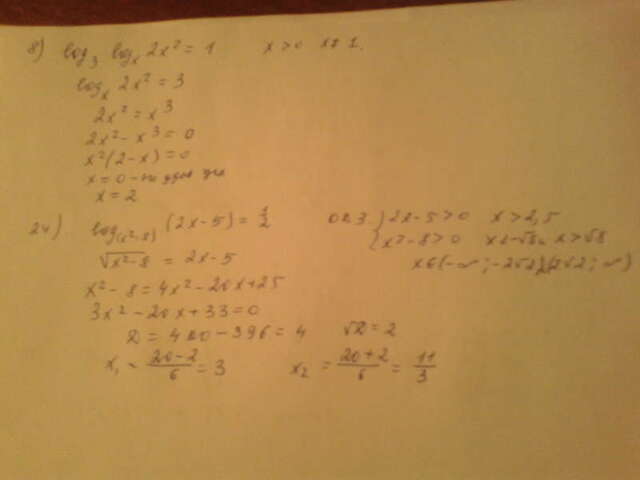 8) log₃ logₓ 2x² = 1   x > 0   x ≠ 1.
logₓ 2x² = 3
2x² = x³
2x² - x³ = 0
x²(2 - x) = 0
x = 0 - не удов
x = 2
24) log₍ₓ²₋₈₎ (2x - 5) = 1/2   ОДЗ. { 2x - 5 > 0   x > 2,5
√(x² - 8) = 2x - 5   x² - 8 > 0   x < -√8   x > √8
x² - 8 = 4x² - 20x + 25   x ∈ (-∞; -2√2)(2√2; ∞)
3x² - 20x + 33 = 0
D = 400 - 396 = 4   √D = 2
x₁ = (20 - 2)/6 = 3   x₂ = (20 + 2)/6 = 11/3